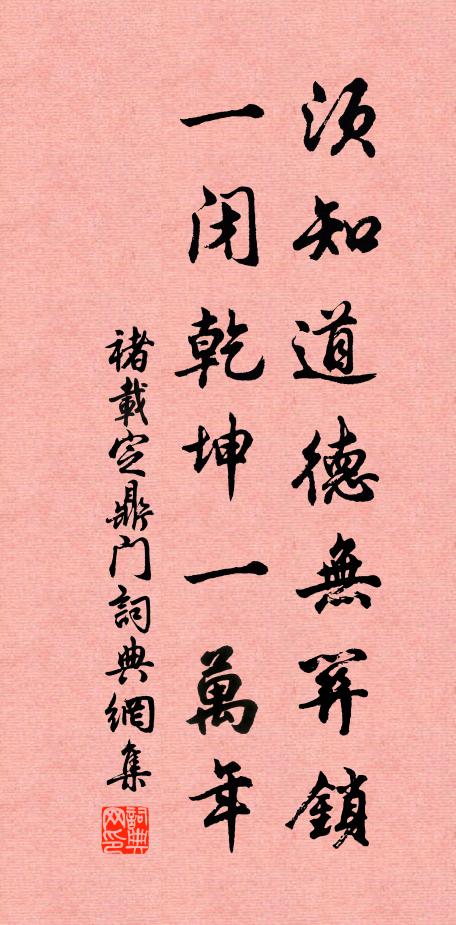 須知道德無關鎖
一閉乾坤一萬年
褚載定鼎門詞典網集
詞典网印